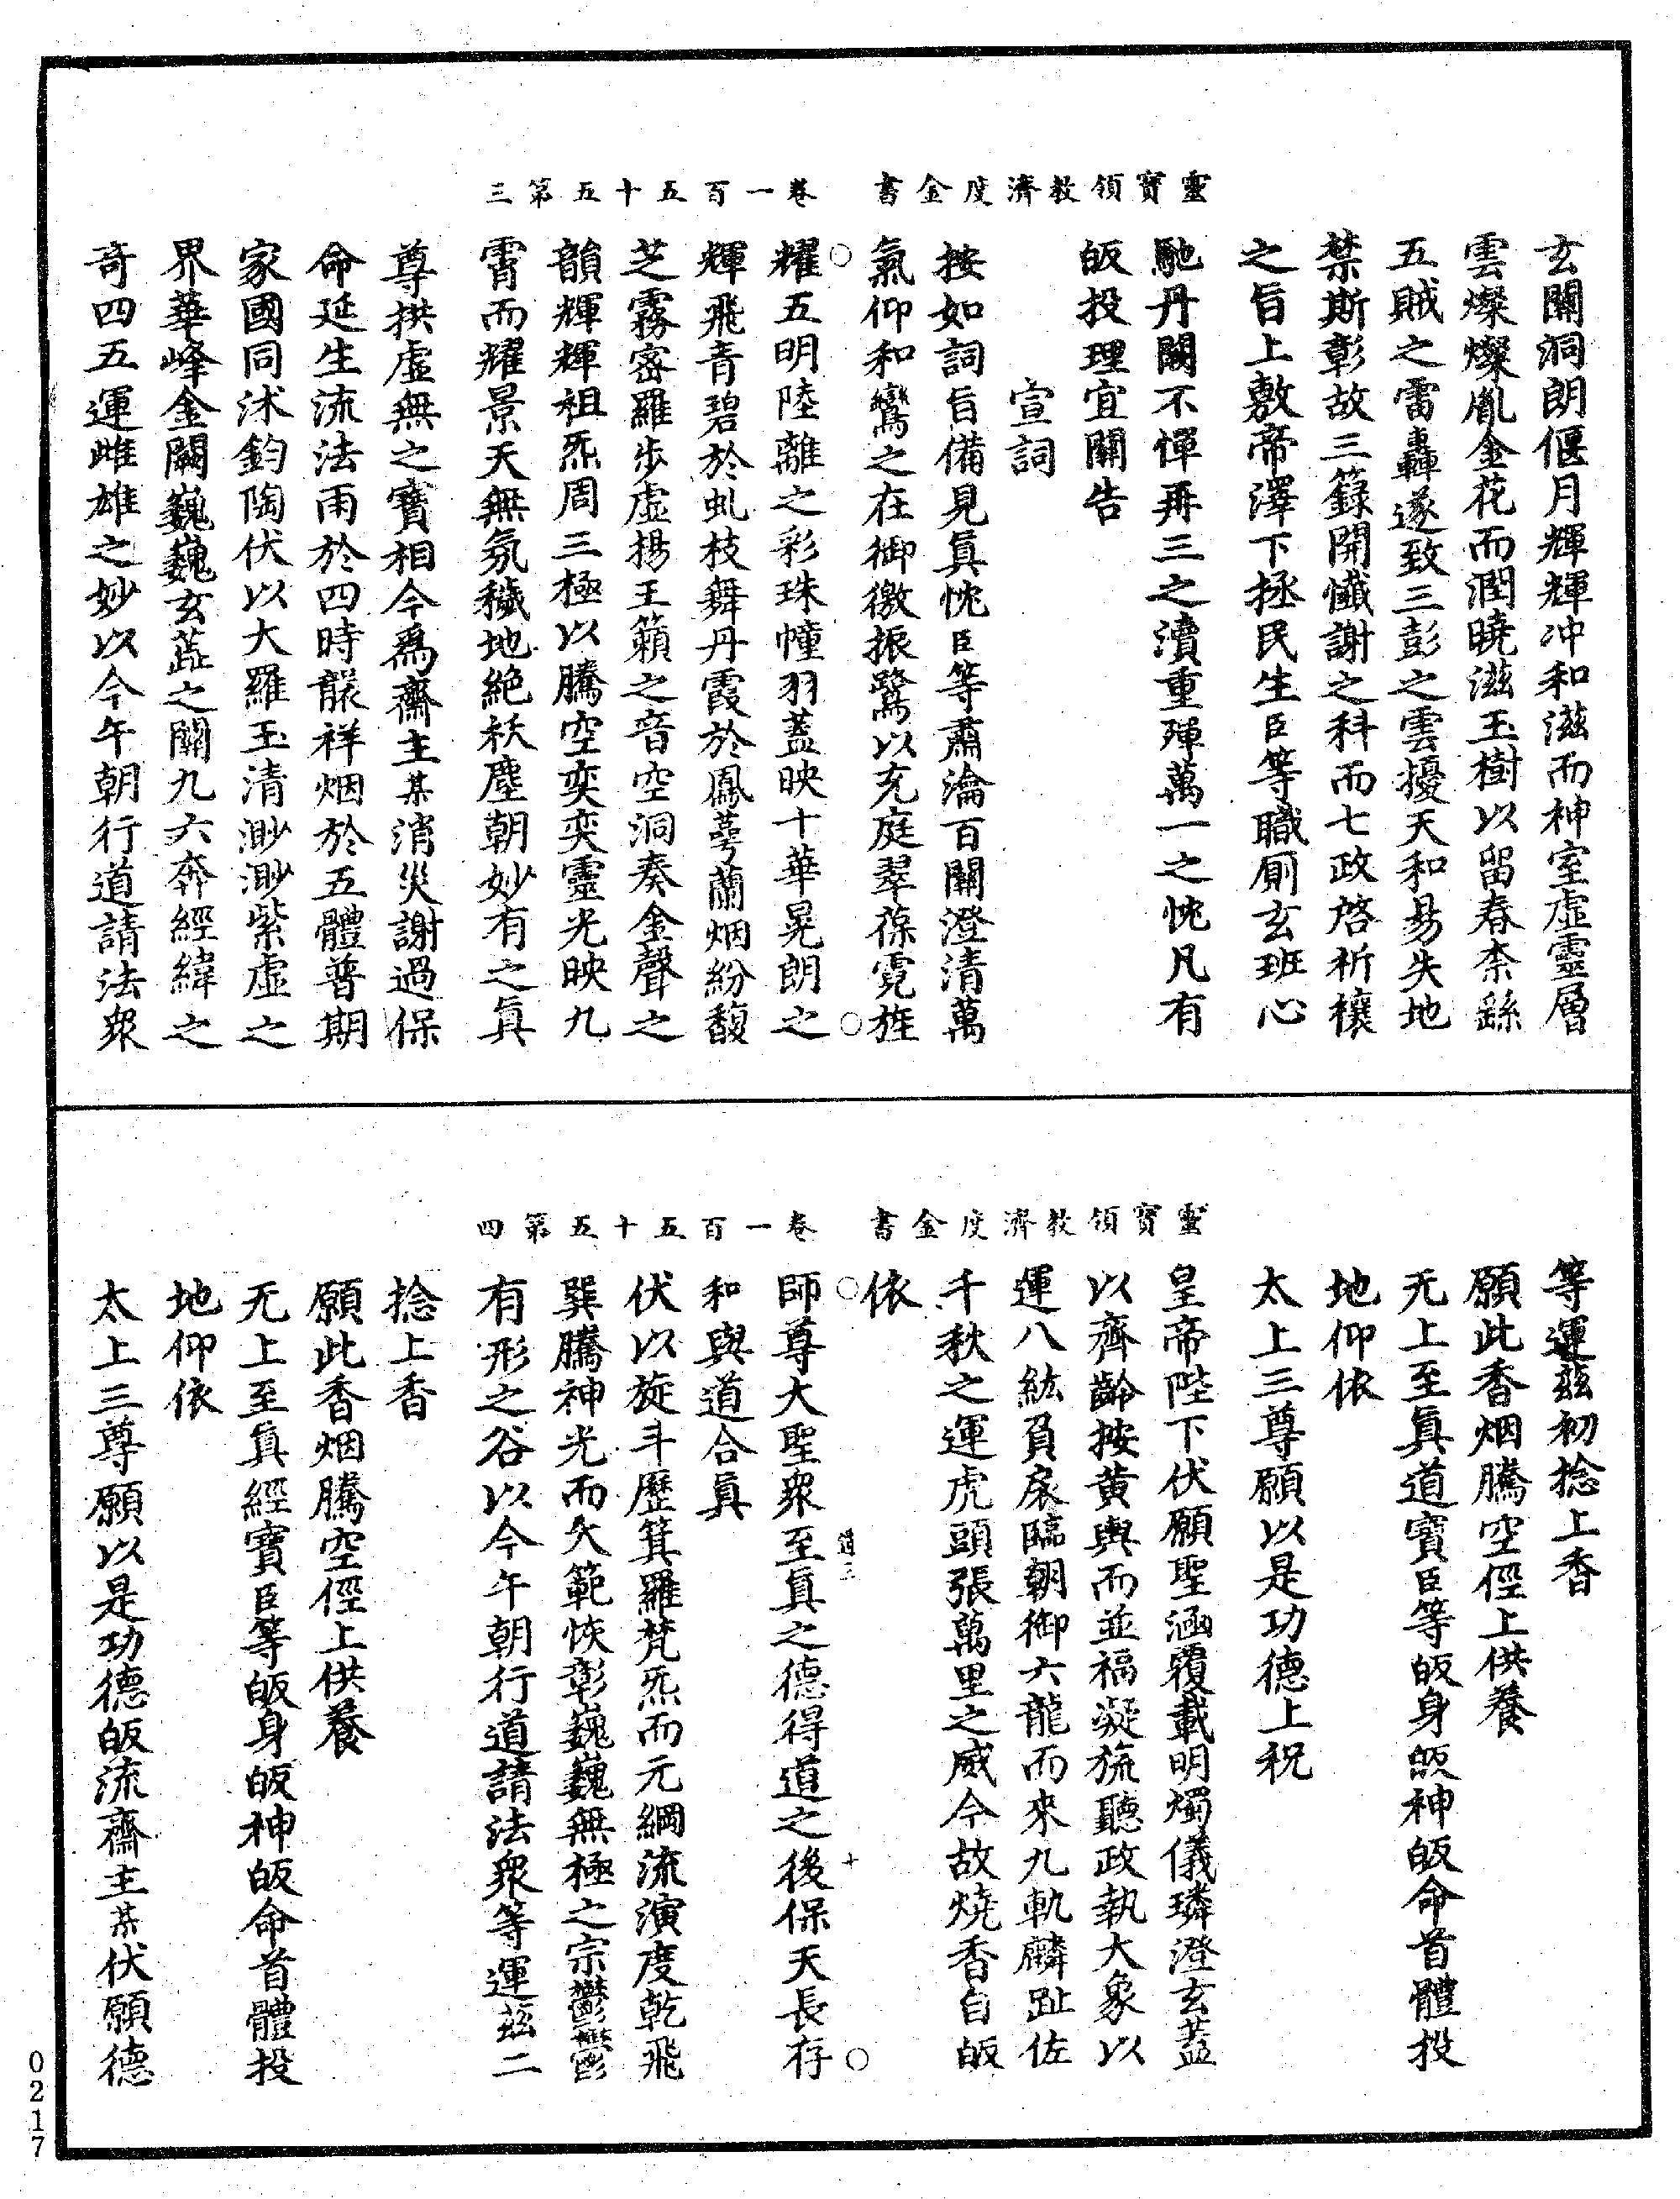 靈寶領教濟度金書 卷一百五十五第三
玄關洞朗偃月輝輝冲和滋而神室虛靈層
雲燦燦胤金花而潤曉滋玉樹以留春柰繇
五賊之雷轟遂致三彭之雲擾天和易失地
禁斯彰故三籙開懺謝之科而七政啓祈禳
之旨上敷帝澤下拯民生臣等職厠玄班心
馳丹闕不憚再三之瀆重殫萬一之忱凡有
皈投理宜關告
宣詞
按如詞旨備見眞忱臣等肅瀹百關澄清萬
氣仰和鸞之在御徼振鷺以充庭翠葆霓旌
耀五明陸離之彩珠幢羽蓋映十華晃朗之
輝飛青碧於虬枝舞丹霞於鳳蕚蘭烟紛馥
芝霧密羅步虛揚王籟之音空洞奏金聲之
韻輝輝祖炁周三極以騰空奕奕靈光映九
霄而耀景天無氛穢地絶秋塵朝妙有之眞
尊拱虛無之寶相今爲齋主某消災謝過保
命延生流法雨於四時靉祥烟於五體普期
家國同沭鈞陶伏以大羅玉清渺渺紫虛之
界華峰金闕巍巍玄蕋之關九六奔經緯之
奇四五運雌雄之妙以今午朝行道請法衆
靈寶領教濟度金書 卷一百五十五第四
等運茲初捻上香
願此香烟騰空徑上供養
无上至眞道寶臣等皈身皈神皈命首體投
地仰依
太上三尊願以是功德上祝
皇帝陛下伏願聖涵覆載明燭儀璘澄玄蓋
以齊齡按黄輿而並福凝旒聽政執大象以
運八紘負扆臨朝御六龍而來九軌麟趾佐
千秋之運虎頭張萬里之威今故燒香自皈
依
師尊大聖衆至眞之德得道之後保天長存
和與道合眞
伏以旋斗歷箕羅梵炁而元綱流演度乾飛
巽騰神光而大範恢彰巍巍無極之宗鬱鬱
有形之谷以今午朝行道請法衆等運茲二
捻上香
願此香烟騰空徑上供養
无上至眞經寶臣等皈身皈神皈命首體投
地仰依
太上三尊願以是功德皈流齋主某伏願德
道三
十
0217